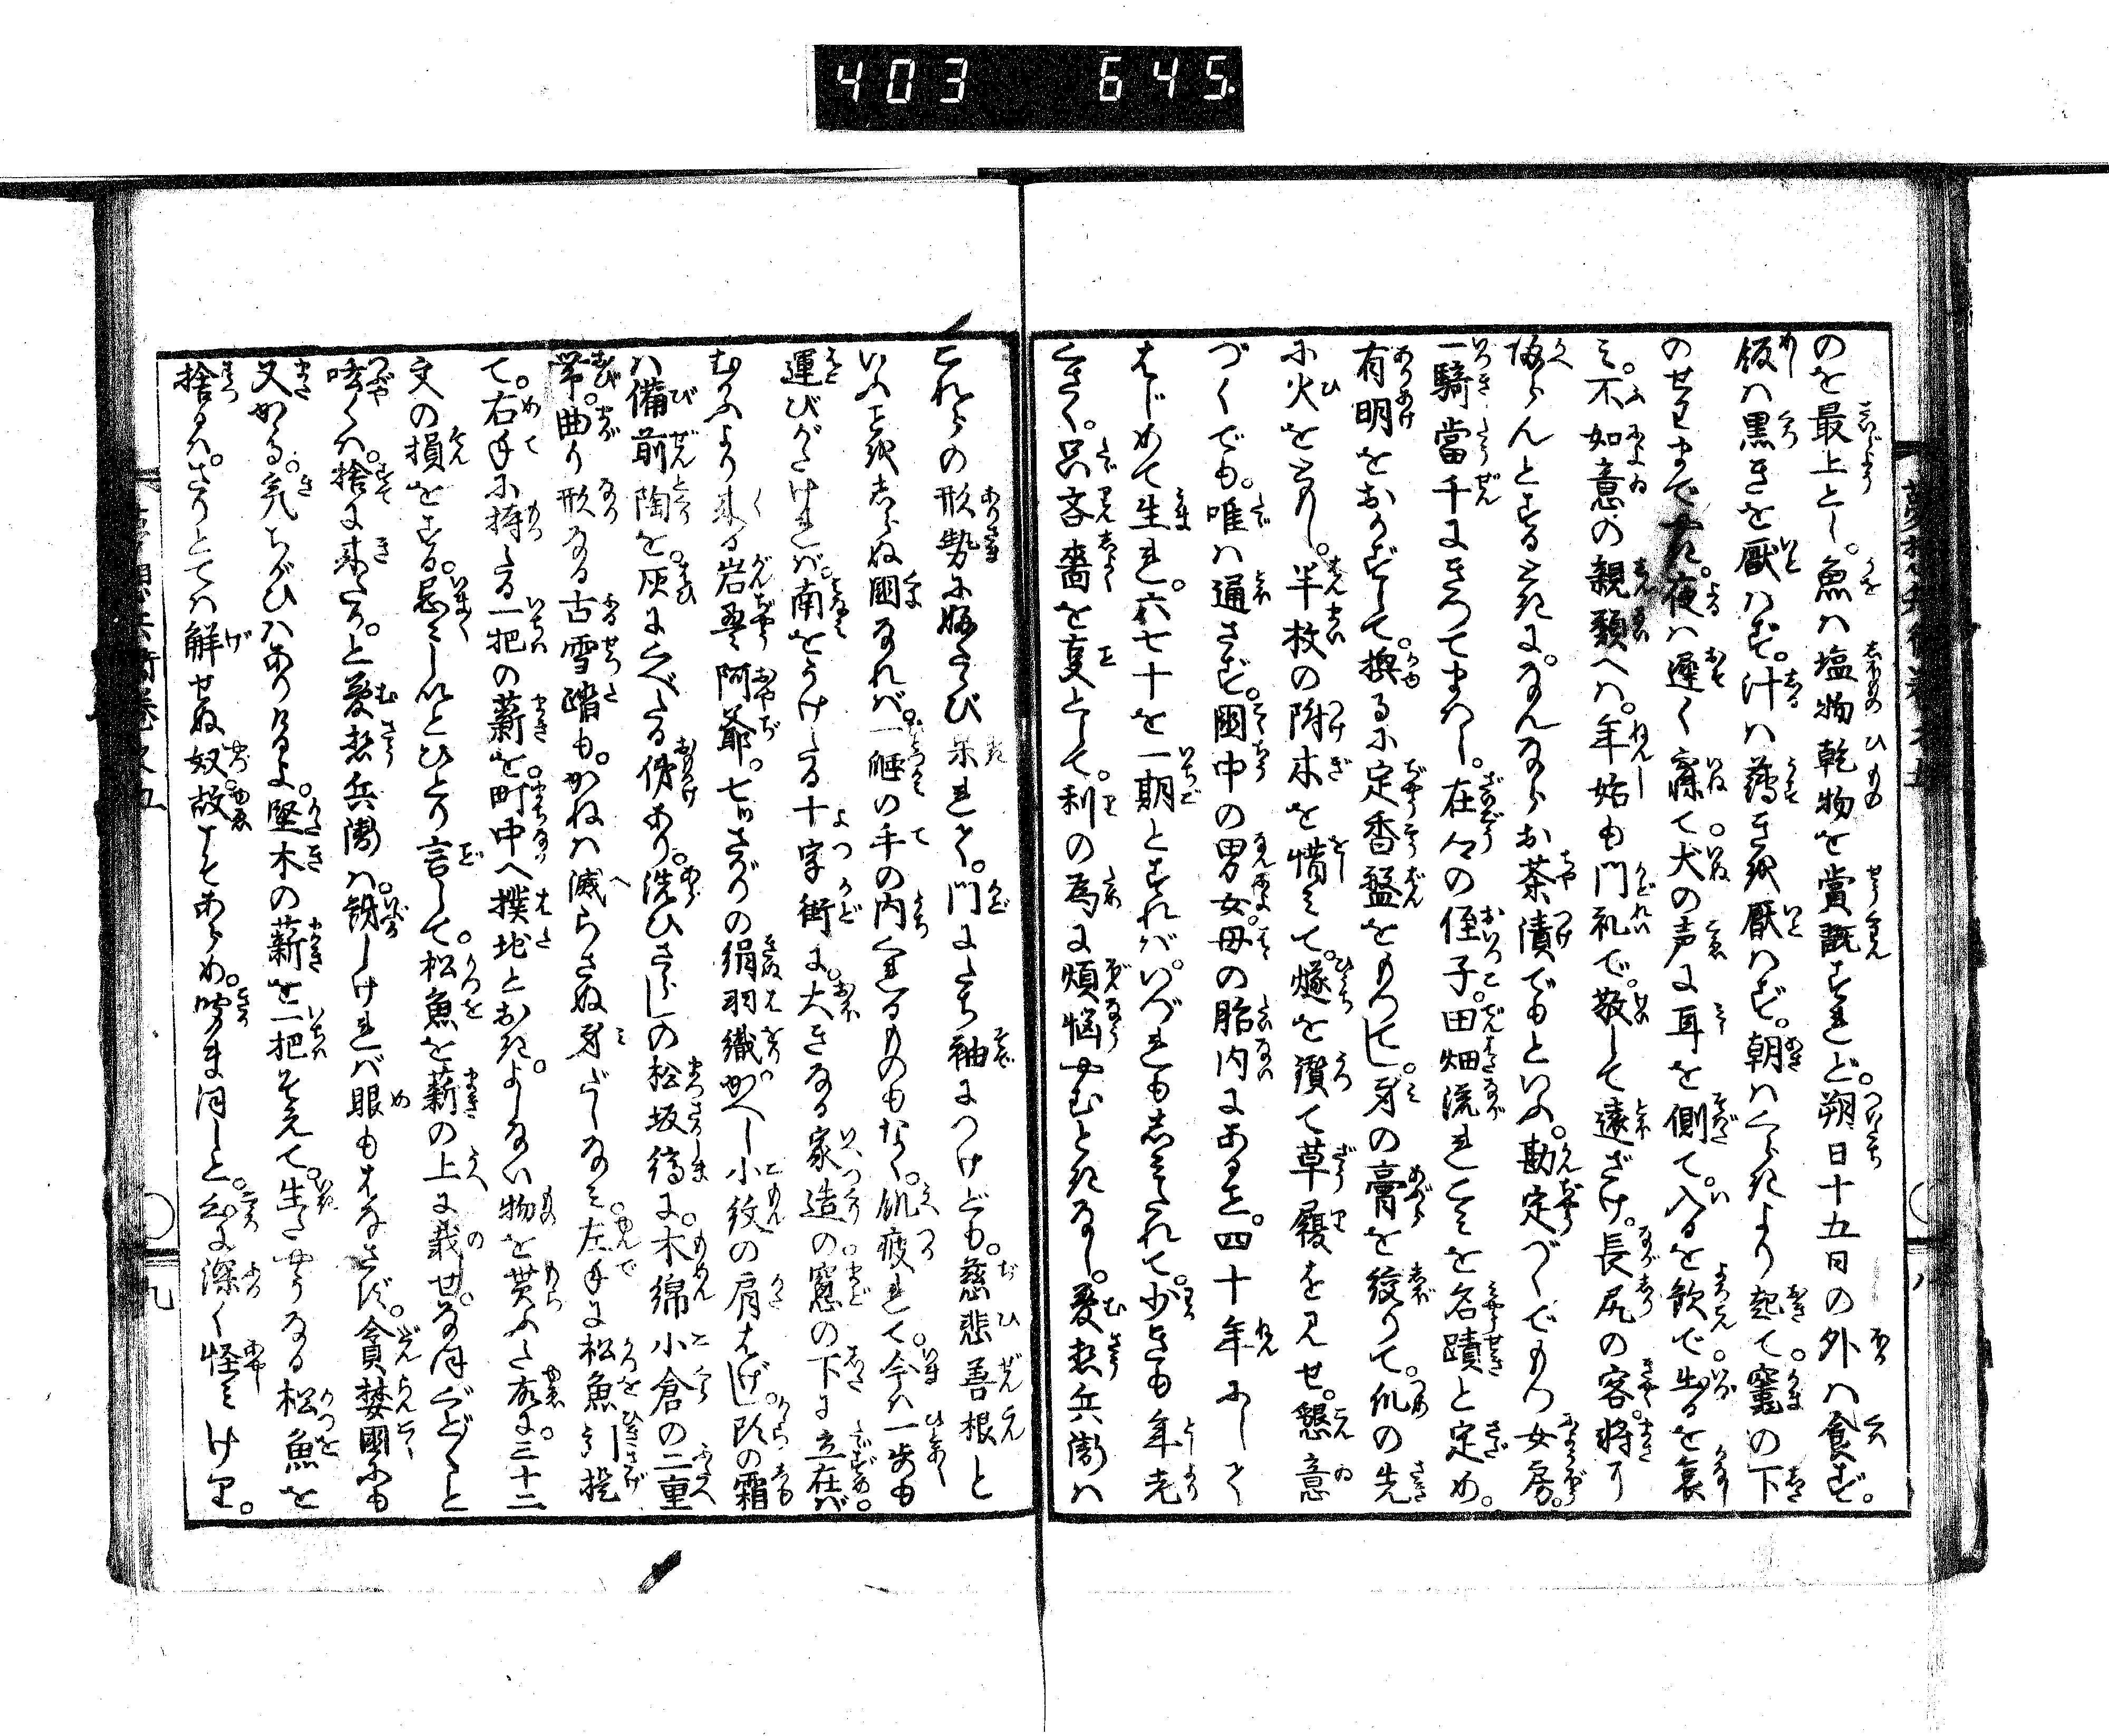 403 645.
のを最上とし。魚ハ塩物乾物を賞翫すれど。朔日十五日の外ハ食ず。
飯ハ黒きを厭ハず。汁ハ薄きを厭ハず。朝ハくらきより起て。竈の下
のせわまでやき。夜ハ遅く寐て犬の声に耳を側て。入るを歓で出るを哀
み。不如意の親類へハ。年始も門礼で。敬して遠ざけ。長尻の客。將に
帰らんとするときに。なんならお茶漬でもといふ。勘定づくでもつ女房。
一騎當千にきつてまハし。在々の侄子。田畑流れこみを名蹟と定め。
有明をおかずして。探るに定香盤をもつし。身の膏を絞りて。爪の先
に火をともし。半枚の附木を惜みて。燧を鑚て草履を見せ。懇意
づくでも。唯ハ通さず。國中の男女。母の胎内にある事。四十年にして
はじめて生れ。六七十を一期とすれバ。いづれもしミたれて。少きも年老
くさく。只吝嗇を夏として。利の為に煩悩やむときなし。夢想兵衛ハ
これらの形勢に媚さび果れて。門にたち袖につけども。慈悲善根と
いふ事をしらぬ國なれバ。一握の手の内くるるものもなく。飢疲れて。今ハ一歩も
運びがたけれバ。南をうけたる十字街に。大きなる家造の窓の下に立在バ。
むかふより来る岩乗阿爺。七ツさがりの絹羽織かへし小紋の肩はげし。頭の霜
ハ備前陶を。灰にくべたる俤あり。洗ひさらしの松坂縞に。木綿小倉の二重
帯。曲り形なる古雪踏も。かねハ減らさぬ身だしなみ。左手に松魚引提
て。右手に持たる一把の薪を。町中へ撲地とおき。よしない物を貰ふた故に。三十二
文の損をする。忌々しいとひとり言して。松魚を薪の上に載せ。なほくどくどと
呟くハ。捨に来たか。と夢想兵衛ハ。訝しけれバ眼もはなさず。貪婪國にも
又かゝる。気ちがひハありけるよ。堅木の薪を一把そえて。生たやうなる松魚を
捨るハ。さりとてハ解せぬ奴。故こそあらめ。噯まほしと。云々に深く怪みけり。
夢想兵衛巻之五
八
九